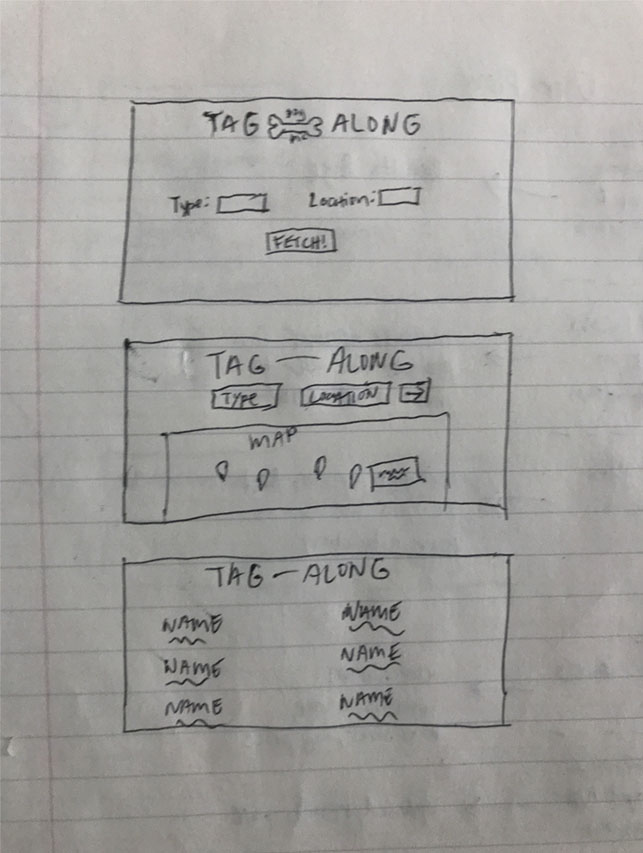 TAG ALONG
Type: Location:
FETCH!
TAG — ALONG
TYPE LOCATION →
MAP
TAG — ALONG
NAME NAME
NAME NAME
NAME NAME